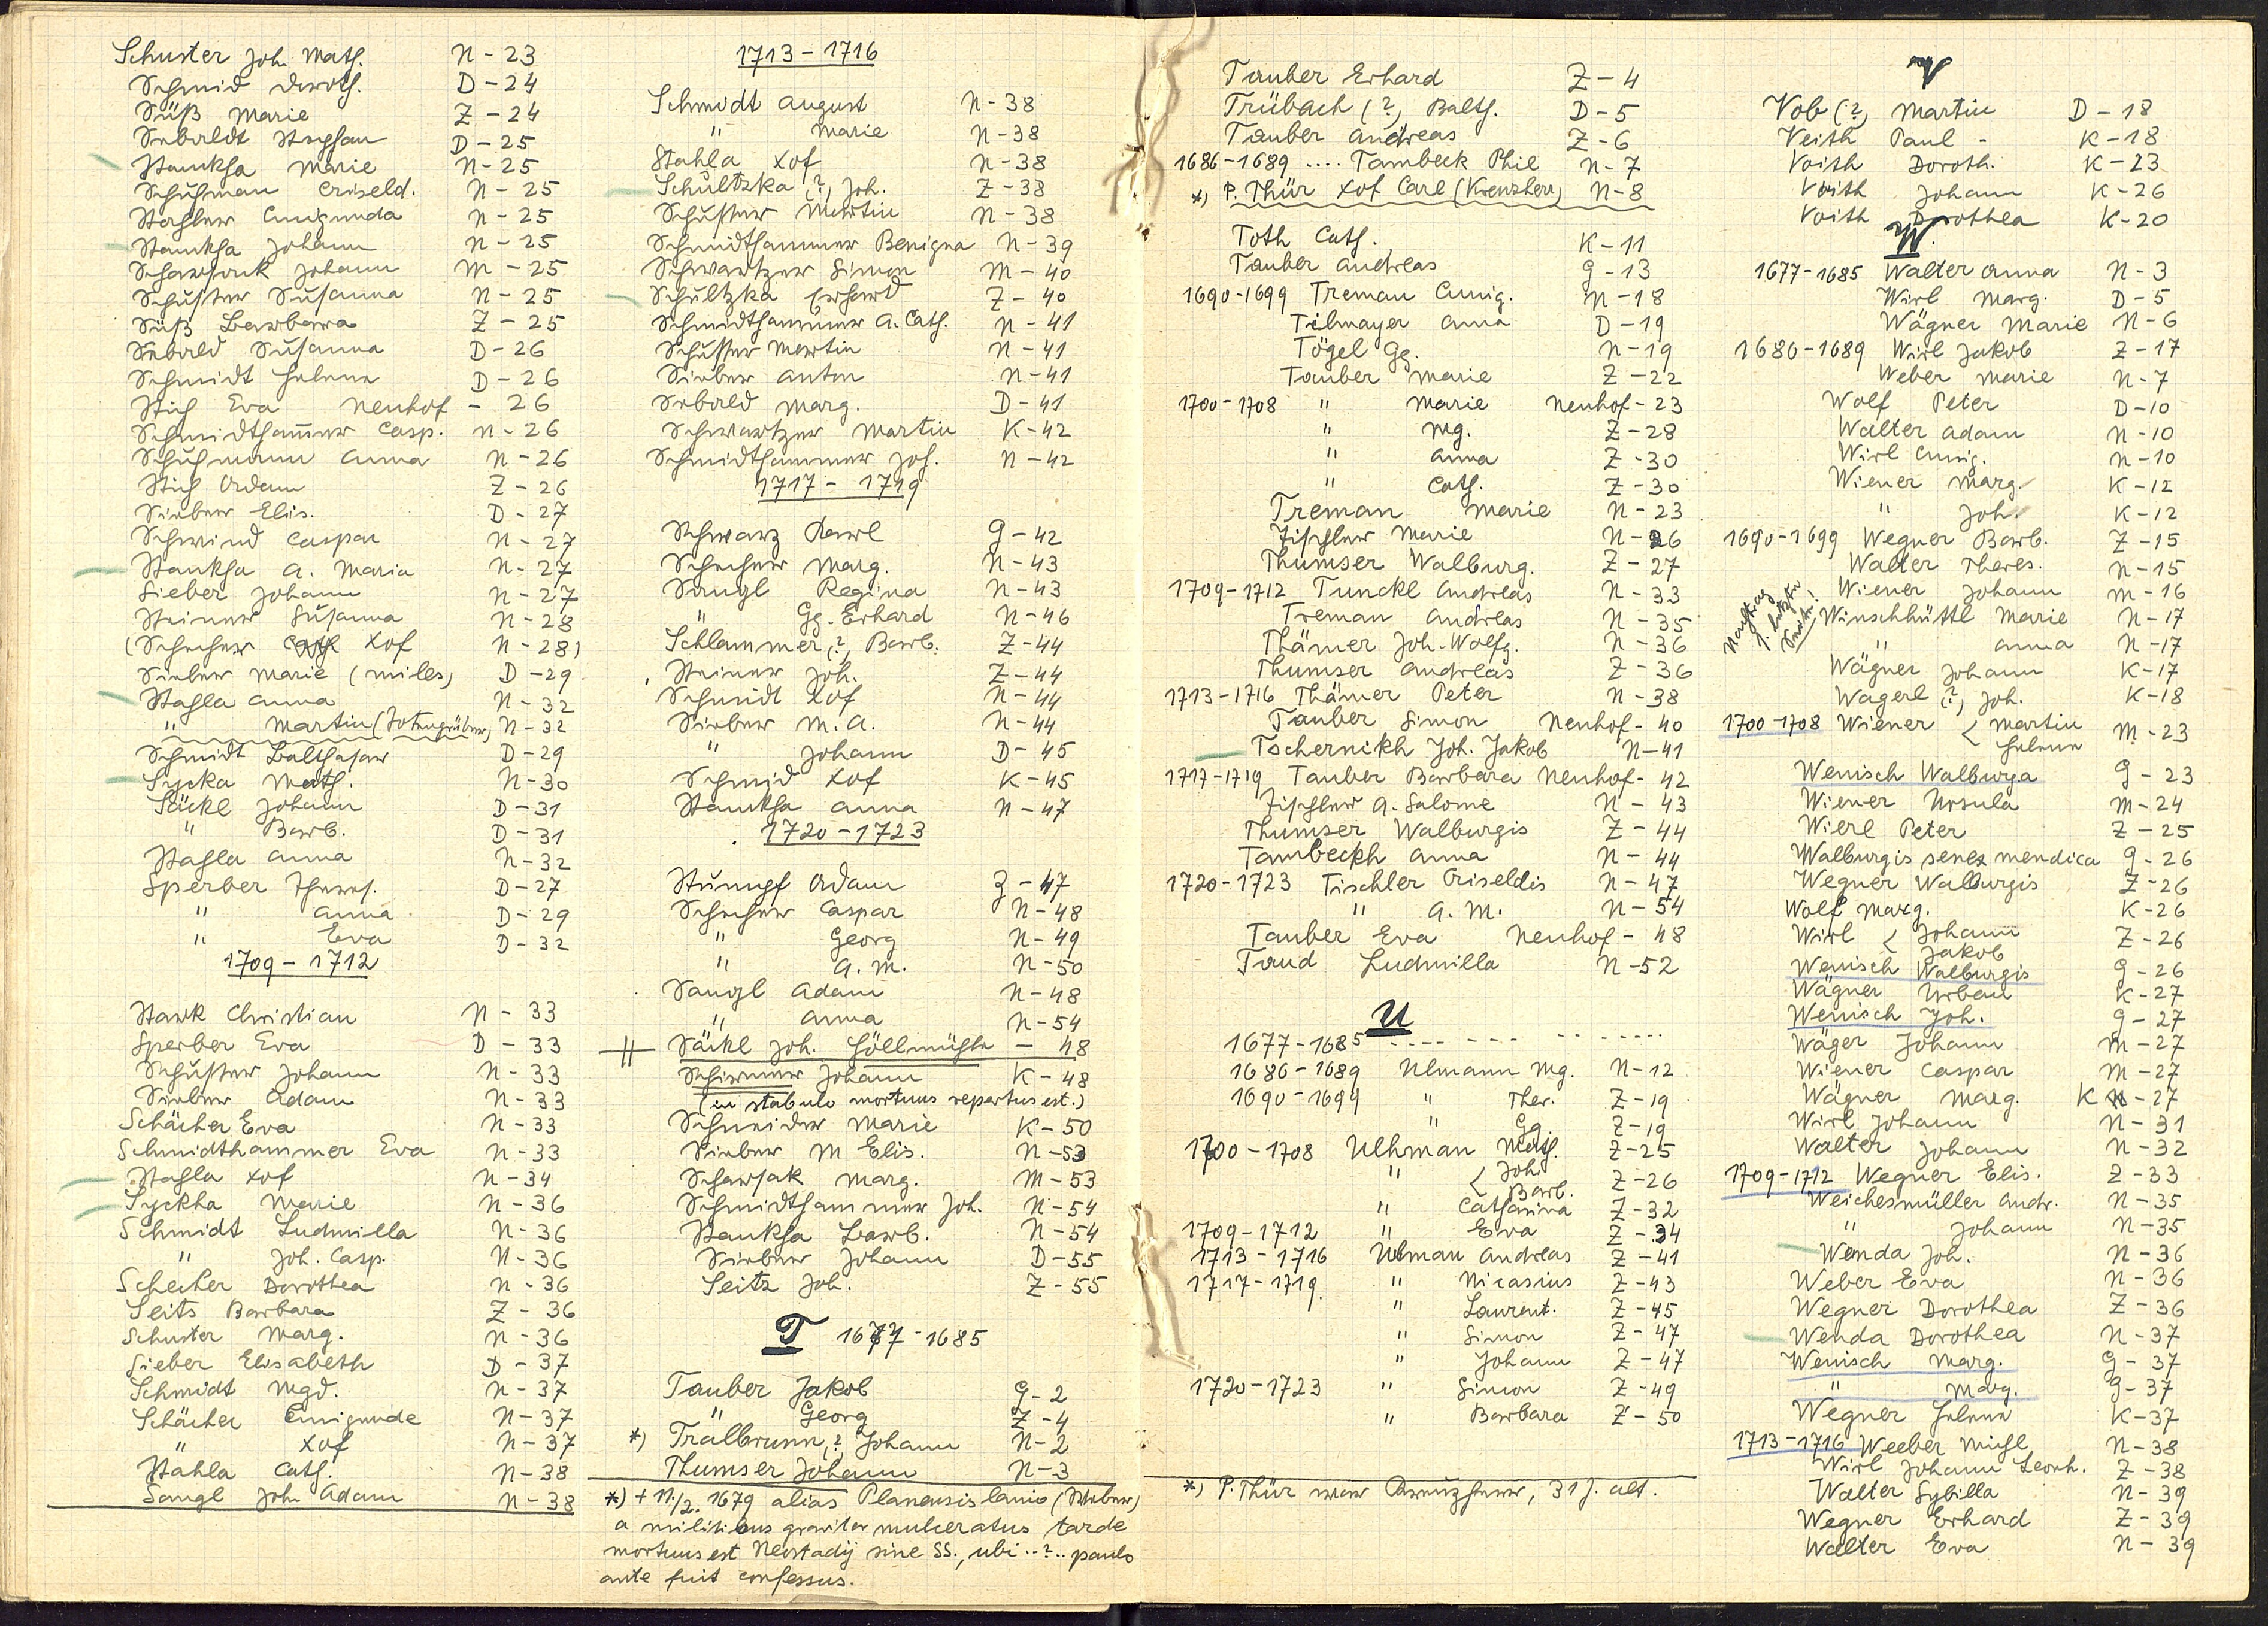 Schuster Joh. Math. N - 23
Schmid Doroth. D - 24
Süß Marie Z - 24
Sebaldt Stephan D - 25
Stankha Marie N - 25
Schuhman Criseld. N - 25
Stachler Cunigunda N - 25
Stankha Johann N - 25
Johann M - 25
Schuster Susanna N - 25
Süß Barbara Z - 25
Sebald Susanna D - 26
Schmidt Helena D - 26
Stich Eva Neuhof - 26
Schmidtham̅er Casp. N - 26
Schuhmann Anna N - 26
Stich Adam Z - 26
Sieber Elis. D - 27
Schwind Caspar N - 27
Stankha A. Maria N - 27
Sieber Johann N - 27
Steiner Susanna N - 28
(Schecher Xof N - 28)
Sieber Marie (miles) D - 29
Stahla Anna N - 32
" Martin (Totengräber) N - 32
Schmidt Balthasar D - 29
Sycka Math. N - 30
Säckl Johann D - 31
" Barb. D - 31
Stahla Anna N - 32
Sperber Theres. D - 27
" Anna D - 29
" Eva D - 32
1709 - 1712
Stark Christian N - 33
Sperber Eva D - 33
Schuster Johann N - 33
Sieber Adam N - 33
Schächer Eva N - 33
Schmidthammer Eva N - 33
Stahla Xof N - 34
Syckha Marie N - 36
Schmidt Ludmilla N - 36
" Joh. Casp. N - 36
Schecher Dorothea N - 36
Seits Barbara Z - 36
Schuster Marg. N - 36
Sieber Elisabeth D - 37
Schmidt Mgd. N - 37
Schächer Cunigunde N - 37
" Xof N - 37
Stahla Cath. N - 38
Sangl Joh. Adam N - 38
1713 - 1716
Schmidt August N - 38
" Marie N - 38
Stahla Xof N - 38
Schultzka (?) Joh. Z - 38
Schuster Martin N - 38
Schmidthammer Benigna N - 39
Schwartzer Simon M - 40
Schultzka Erhard Z - 40
Schmidthammer A. Cath. N - 41
Schuster Martin N - 41
Sieber Anton N - 41
Sebald Marg. D - 41
Schwartzer Martin K - 42
Schmidthammer Joh. N - 42
1717 - 1719
Schwarz Karl G - 42
Schecher Marg. N - 43
Sangl Regina N - 43
" Gg. Erhard N - 46
Schlammer (?) Barb. Z - 44
Steiner Joh. Z - 44
Schmidt Xof N - 44
Sieber M. A. N - 44
" Johann D - 45
Schmid Xof K - 45
Stankha Anna N - 47
1720 - 1723
Stumpf Adam Z - 47
Schecher Caspar N - 48
" Georg N - 49
" A. M. N - 50
Sangl Adam N - 48
" Anna N - 54
Säckl Joh. Höllmühle - 48
Schirmer Johann K - 48
(in stabulo mortuus repertus est.)
Schneider Marie K - 50
Sieber M Elis. N - 53
Marg. M - 53
Schmidthammer Joh. N - 54
Stankha Barb. N - 54
Sieber Johann D - 55
Seitz Joh. Z - 55
T 1677 - 1685
Tauber Jakob G - 2
" Georg Z - 4
*) Tralbrunn, ? Johann N - 2
Thumser Johann N - 3
*) + 11./2. 1679 alias Planensis lanio
a militibus graviter mulceratus tarde
mortuus est Neostadij sine SS., ubi ..?.. paulo
ante fuit confessus.
Tauber Erhard Z - 4
Trübach (?) Balth. D - 5
Tauber Andreas Z - 6
1686-1689 .... Tambeck Phil N - 7
*) P. Thür Xof Carl (Kreuzherr) N - 8
Toth Cath. K - 11
Tauber Andreas G - 13
1690-1699 Treman Cunig. N - 18
Tilmayer Anna D - 19
Tögel Gg. N - 19
Tauber Marie Z - 22
1700 - 1708 " Marie Neuhof - 23
" Mg. Z - 28
" Anna Z - 30
" Cath. Z - 30
Treman Marie N - 23
Tischler Marie N - 26
Thumser Walburg. Z - 27
1709 - 1712 Tunckl Andreas N - 33
Treman Andreas N - 35
Thämer Joh. Wolfg. N - 36
Thumser Andreas Z - 36
1713 - 1716 Thämer Peter N - 38
Tauber Simon Neuhof - 40
Tschernikh Joh. Jakob N - 41
1717 - 1719 Tauber Barbara Neuhof - 42
Tischler A. Salome N - 43
Thumser Walburgis Z - 44
Tambeckh Anna N - 44
1720 - 1723 Tischler Criseldis N - 47
" A. M. N - 54
Tauber Eva Neuhof - 48
Taud Ludmilla N - 52
U
1677 - 1685 .... ... ... ......
1686 - 1689 Ulmann Mg. N - 12
1690 - 1699 " Ther. Z - 19
" Gg. Z - 19
1700 - 1708 Ulhman Math. Z - 25
" < Joh. Barb. Z - 26
" Catharina Z - 32
1709 - 1712 " Eva Z - 34
1713 - 1716 Ulman Andreas Z - 41
1717 - 1719. " Nicasius Z - 43
" Laurent. Z - 45
" Simon Z - 47
" Johann Z - 47
1720 - 1723 " Simon Z - 49
" Barbara Z - 50
*) P. Thür war Kreuzherr, 31 J. alt.
V
Vob (?) Martin D - 18
Veith Paul - K - 18
Voith Doroth. K - 23
Voith Johann K - 26
Voith Dorothea K - 20
W.
1677 - 1685 Walter Anna N - 3
Wirl Marg. D - 5
Wägner Marie N - 6
1686 - 1689 Wirl Jakob Z - 17
Weber Marie N - 7
Wolf Peter D - 10
Walter Adam N - 10
Wirl Cunig. N - 10
Wiener Marg. K - 12
" Joh. K - 12
1690 - 1699 Wegner Barb. Z - 15
Walter Theres. N - 15
Wiener Johann M - 16
Winschhüttl Marie N - 17
" Anna N - 17
Wägner Johann K - 17
Wagerl (?) Joh. K - 18
1700 - 1708 Wiener < Martin Helena M - 23
Wenisch Walburga G - 23
Wiener Ursula M - 24
Wierl Peter Z - 25
Walburgis senex mendica G - 26
Wegner Walburgis Z - 26
Wolf Marg. K - 26
Wirl < Johann Jakob Z - 26
Wenisch Walburgis G - 26
Wägner Urban K - 27
Wenisch Joh. G - 27
Wäger Johann M - 27
Wiener Caspar M - 27
Wägner Marg. K - 27
Wirl Johann N - 31
Walter Johann N - 32
1709 - 1712 Wegner Elis. Z - 33
Weichesmüller Andr. N - 35
" Johann N - 35
Wenda Joh. N - 36
Weber Eva N - 36
Wegner Dorothea Z - 36
Wenda Dorothea N - 37
Wenisch Marg. G - 37
" Marg. G - 37
Wegner Helena K - 37
1713 - 1716 Weeber Michl N - 38
Wirl Johann Leonh. Z - 38
Walter Sybilla N - 39
Wegner Erhard Z - 39
Walter Eva N - 39